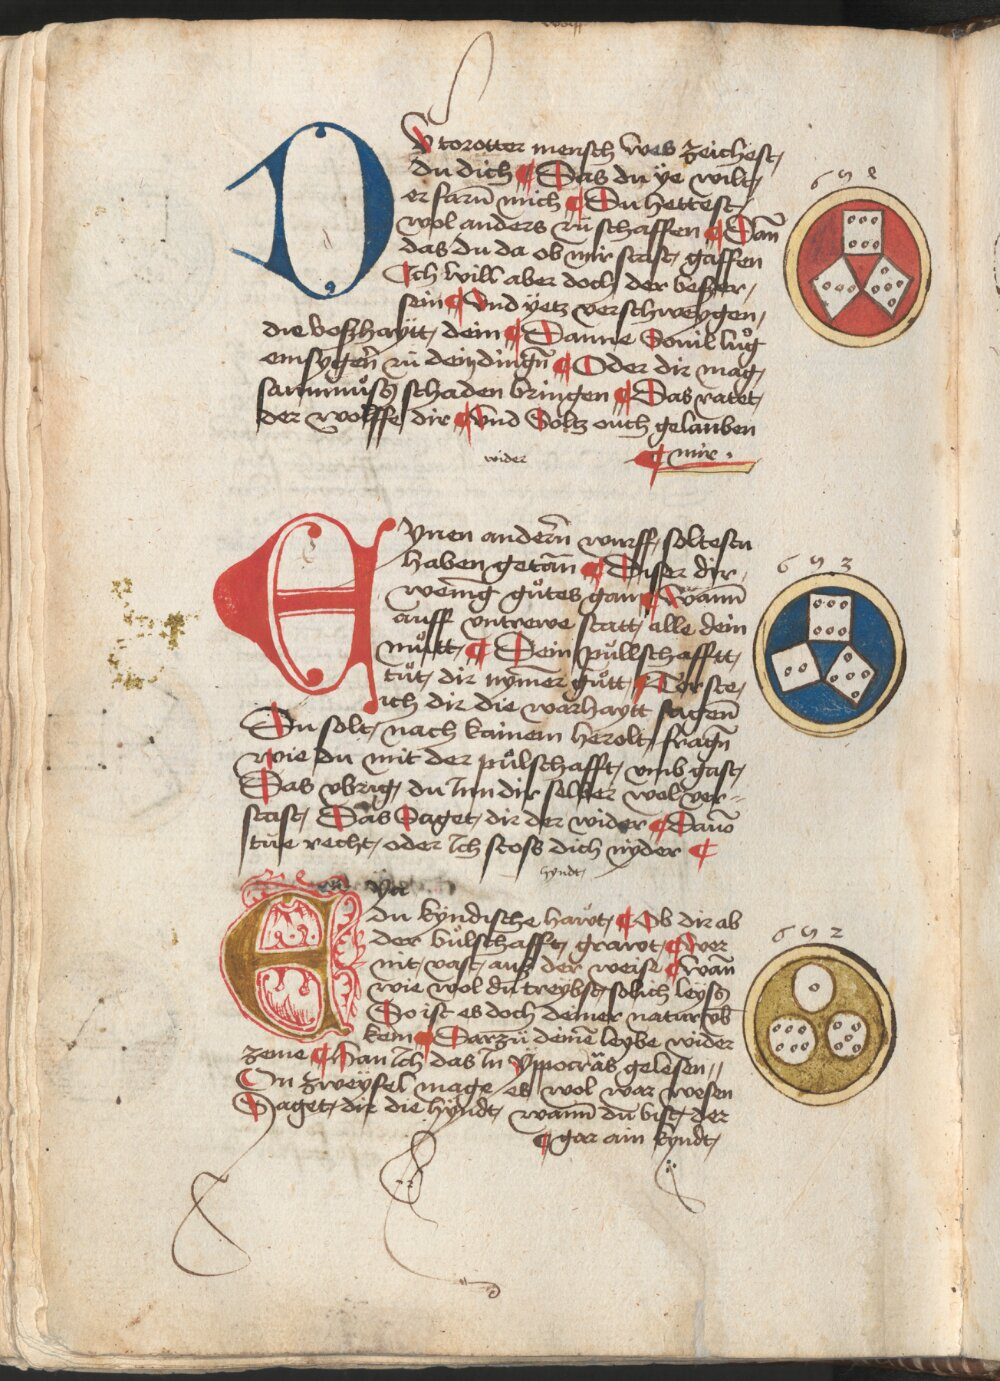 D
V torotter mensch wes zeichest
du dich Das du ye wilt
er farn̄ mich Du hettest
wol anders zu schaffen Dan̄
das du da ob mir stast gaffen
Ich will aber doch der besser
sein Vnd yetz verschweygen
die boßhaytt dein Danne Souil lůg
zu dein dingn̄ Oder dir mag
schaden bringen Das ratet
der wolffe dir Vnd Soltz ouch gelauben
mir
wider
6 5 3
E
Ynen andern̄ wurff soltestu
haben getan̄ Diser dir
wenig gůtes gan Wann̄
auff vntrewe statt alle dein
můtt Dein půllschafftt
tůt dir nymer gůtt Törste
ich dir die warhaytt sagen̄
Du solt nach kainem herolt fragn̄
wie du mit der půlschafft vmb gast
Das vbrig du Inn dir selber wol ver-
stast Das Saget dir der wider
tue recht oder Ich stoss dich nyder
hyndt
6 5 2
E
du kyndische hawt Ob dir ab
der bůlschafft grawt wer
nit vast auß der weise wan̄
wie wol du treybst solich leyß
So ist es doch deiner natur
kein Darzů deinē leybe wider
zeme Han Ich das In Yppocras gelesen
On zweyfel mage es wol war wesen
Saget dir die hyndt wann̄ du bist der
gar ain kyndt